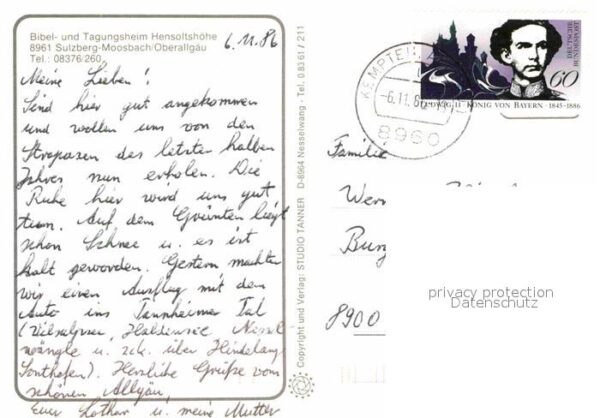 Bibel- und Tagungsheim Hensoltshöhe
8961 Sulzberg-Moosbach/Oberallgäu
Tel.: 08376/260
6.11.86
Meine Lieben!
Sind hier gut angekommen
und wollen uns von den
Strapazen des letzten halben
Jahres nun erholen. Die
Ruhe hier wird uns gut
tun. Auf dem Grünten liegt
schon Schnee u. es ist
kalt geworden. Gestern machten
wir einen Ausflug mit dem
Auto ins Tannheimer Tal
(Vilsalpsee, Haldensee, Nessel-
wängle u. zck. über Hindelang
Sonthofen). Herzliche Grüße vom
schönen Allgäu,
Euer Lothar u. meine Mutter
Copyright und Verlag: STUDIO TANNER D-8964 Nesselwang · Tel. 0 83 61 / 211
KEMPTEN
-6.11.86
8960
DEUTSCHE
BUNDESPOST
60
LUDWIG II. KÖNIG VON BAYERN · 1845-1886
Familie
Wer
Bur
8900
privacy protection
Datenschutz